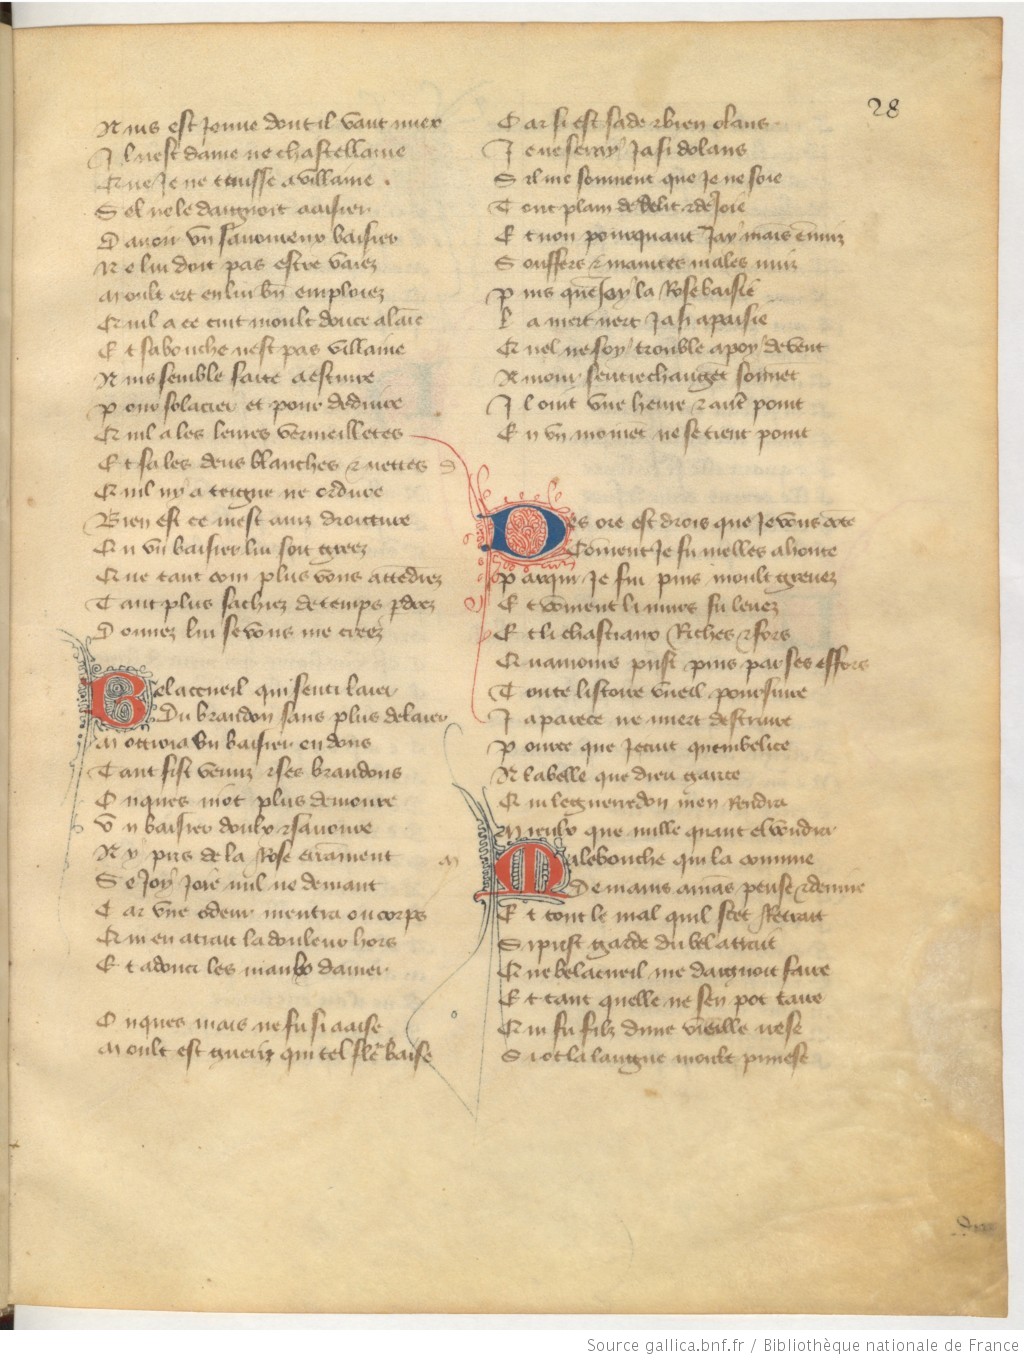 28
N uis est Jonne dont il vaut muex
I l nest dame ne chastellaine
Q ue Je ne tenisse a villaine
S el ne le daignoit aaisier
D auoir vn sauoureux baisier
N e lui doit pas estre vaiez
M oult ert en lui bn emploiez
Q uil a ce cuit moult douce alaine
E t sa bouche nest pas villaine
N uis semble faite a estuire
P our solacier et pour deduire
Q uil a les leures vermeilletes
E t sa les dens blanches & netres
Q uil ny a teigne ne ordure
B ien est ce mest auis droiture
Q u vn baisier lui soit greez
Q ue tant com plus vous attendrez
T ant plus sachiez de temps perdrez
D onnez lui se vous me creez
B elacueil qui senti laier
Du brandon sans plus delaier
M ottroia vn baisier en dons
T ant fist venus & ses brandons
O nques niot plus demoure
V n baisier doulx & sauoure
N y pris de la Rose erranment
Se Joy Joie nul ne demant
C ar vne odeur mentra ou corps
Q ui en atrait la douleur hors
E t adouci les maulx damer
O nques mais ne fu si aaise
M oult est gueriz qui tel fleur baise
C ar si est sade & bien olans
I e ne seray Ja si dolans
S il me souuient que Je ne soie
T out plain de delit & de Joie
E t non pourquant Jay mains ennuiz
S ouffers & maintes males nuiz
P uis que Joy la Rose baisie
L a mer nert Ja si apaisie
Q uel ne soy trouble a poy de vent
A mour sentrechangent souuet
I l oint vne heure & autre point
E n vn momet ne se tient point
D es ore est drois que Je vous cote
Coment Je fu melles a honte
P ar qui Je fui puis moult greuez
E t coment li murs fu leuez
E t li chastiaux Riches & fors
Q uamours prist puis par ses effors
T oute listoire vueil poursuire
J a parece ne miert destruire
P ource que Je cuit quembelice
A la belle que dieu garice
Q ui le guerredon men Rendra
M ieulx que nulle quant el voudra
M alebouche qui la couine
De mains amas pense & deuine
E t tout le mal quil scet Retrait
S i prist garde du bel attrait
Q ue belacueil me daignoit faire
E t tant quelle ne sen pot taire
Q ui fu filz dune vieille nese
S i ot la langue moult punese
Source gallica.bnf.fr / Bibliothèque nationale de France